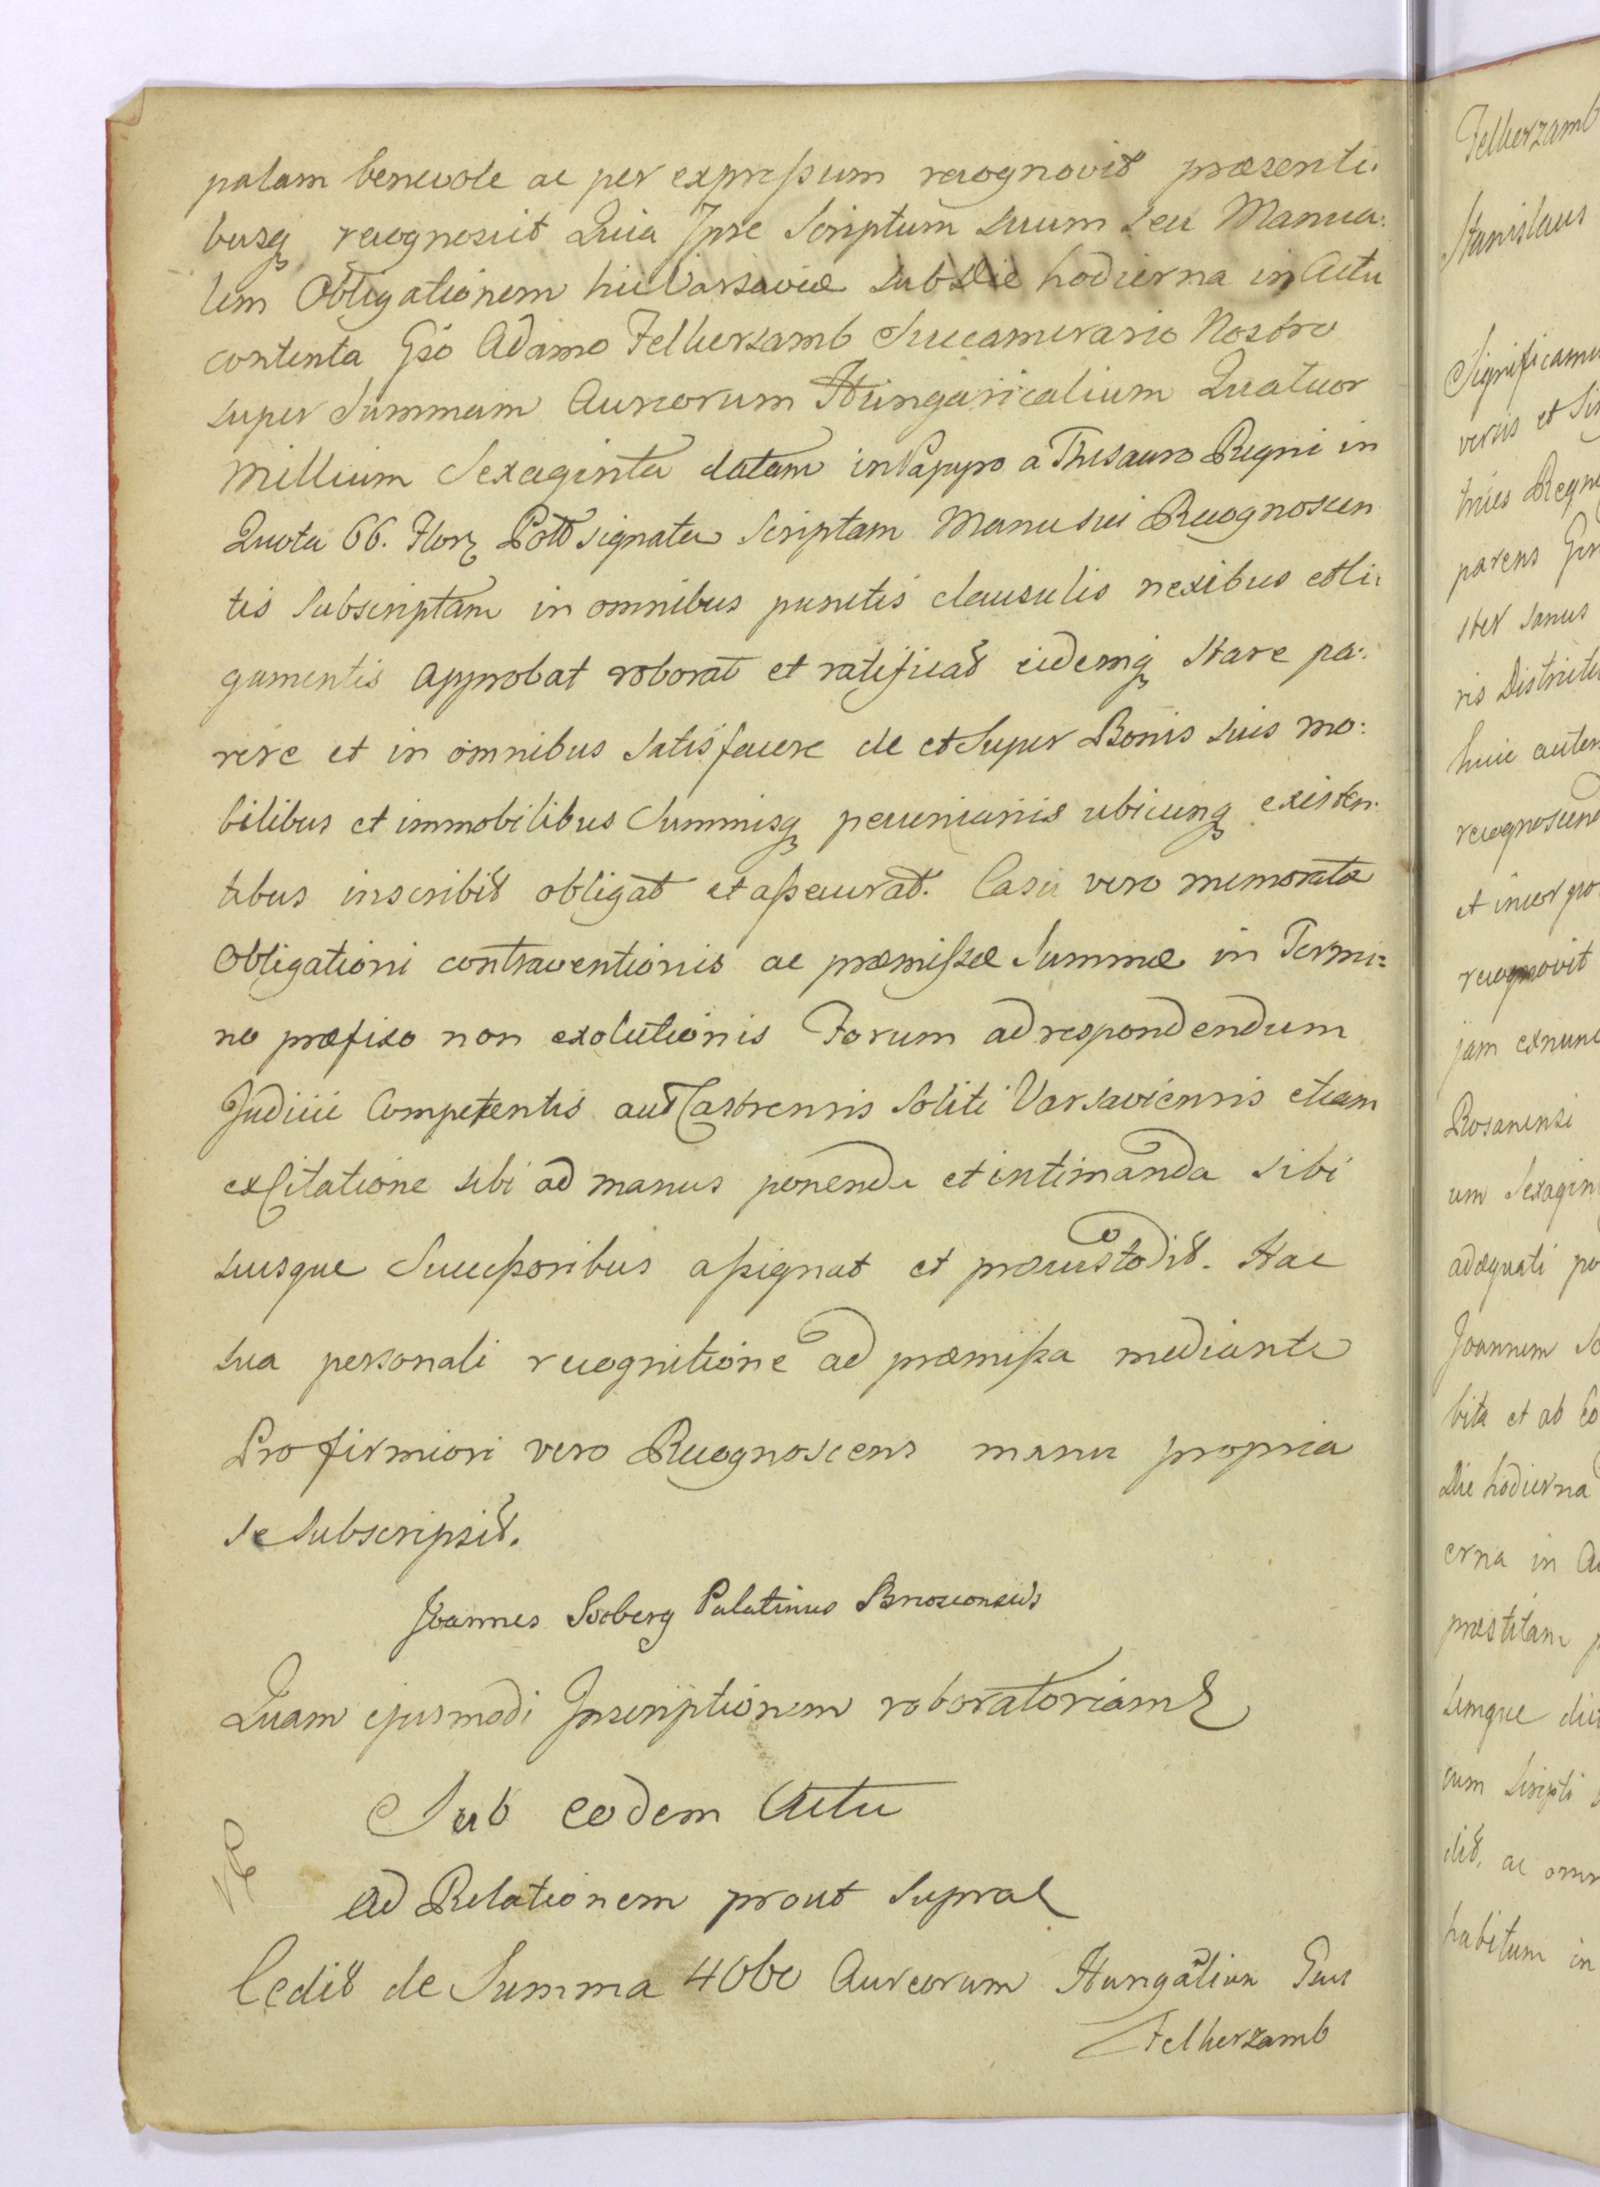 palam benevole ac per expressum recognovit praesenti:
busq recognoscit Quia Ipse Scriptum suum seu Manua:
lem Obligationem hic Varsaviae sub Die hodierna in Actu
contenta Gso Adamo Felkerzamb Succamerario Nostro
super Summam Aureorum Hungaricalium Quatuor
Millium Sexaginta datam in Papyro a Thesauro Regni in
Quota 66. Flor Poll signata Scriptam Manu sui Recognoscen
tis Subscriptam in omnibus punctis clausulis nexibus et li:
gamentis approbat roborat et ratificat eidemq Stare pa:
rere et in omnibus Satisfacere de et Super Bonis suis mo:
bilibus et immobilibus Summisq pecuniariis ubicunq existen:
tibus inscribit obligat et assecurat. Casu vero memorata
Obligationi contraventionis ac praemissae Summae in Termi=
no praefixo non exolutionis Forum ad respondendum
Judicii Competentis aut Castrensis Soliti Varsaviensis etiam
ex Citatione sibi ad manus ponenda et intimanda sibi
suisque Successoribus assignat et praecustodit. Hac
sua personali recognitione ad praemissa mediante
Pro firmiori vero Recognoscens manu propria
se Subscripsit.
Joannes Szoberg Palatinus
Quam ejusmodi Inscriptionem roboratoriam
Sub eodem Actu
ad Relationem prout Supra
Cedit de Summa 4060 Aureorum Hungalium Gsus
Felkerzamb
Felkerzamb
Stanislaus
Significamus
versis et Sin
huius Regni
parens
ster sanus
ris Districtu
huic autem
recognoscend
et incorpo
recognovit
jam exnunc
Rosanensi
um Sexagin
adaequati po
Joannem
bita et ab
Die hodierna
erna in
praestitam
semque
cum Scripti
dit, ac omn
habitum in